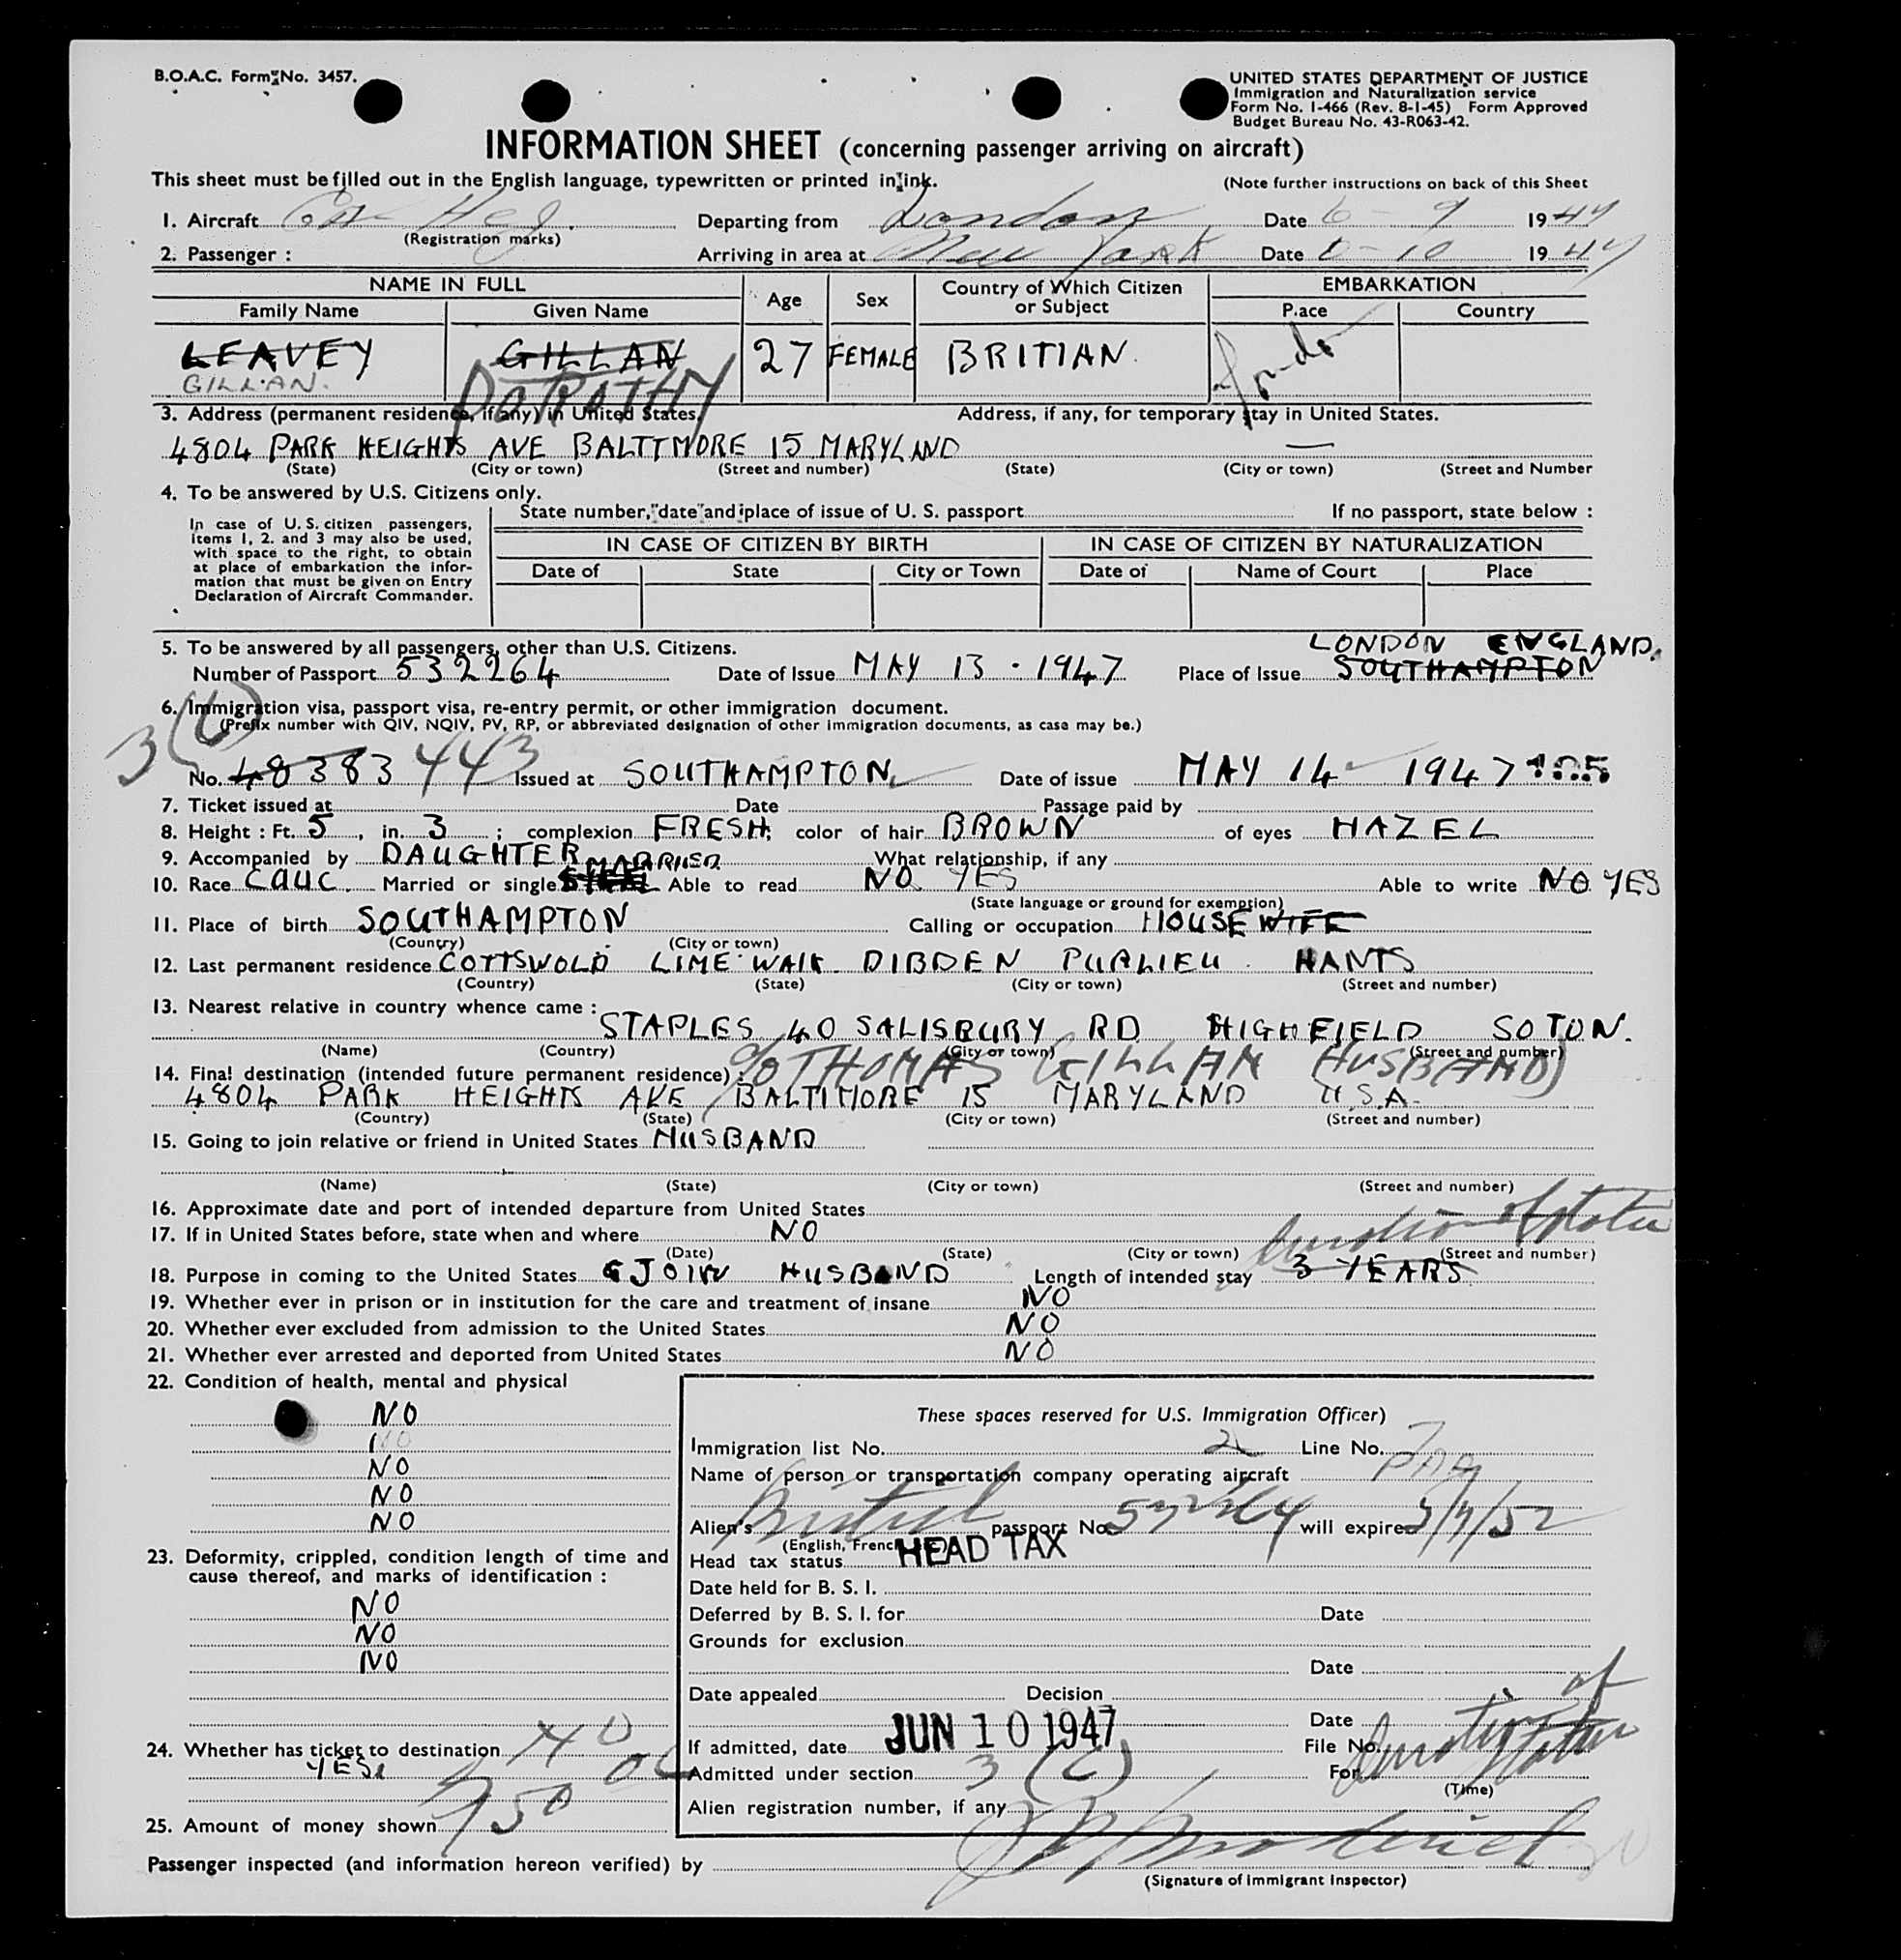 B.O.A.C. Form No. 3457.
UNITED STATES DEPARTMENT OF JUSTICE
Immigration and Naturalization service
Form No. I-466 (Rev. 8-1-45) Form Approved
Budget Bureau No. 43-R063-42.
INFORMATION SHEET (concerning passenger arriving on aircraft)
This sheet must be filled out in the English language, typewritten or printed in ink. (Note further instructions on back of this Sheet
1. Aircraft (Registration marks) Departing from London Date 6-9 1947
2. Passenger : Arriving in area at New York Date 6-10 1947
NAME IN FULL Age Sex Country of Which Citizen or Subject EMBARKATION
Family Name Given Name P.ace Country
LEAVEY GILLAN 27 FEMALE BRITIAN. London
GILLAN. DOROTHY
3. Address (permanent residence, if any) in United States. Address, if any, for temporary stay in United States.
4804 PARK HEIGHTS AVE BALTIMORE 15 MARYLAND —
(State) (City or town) (Street and number) (State) (City or town) (Street and Number
4. To be answered by U.S. Citizens only.
In case of U.S. citizen passengers, items 1, 2. and 3 may also be used, with space to the right, to obtain at place of embarkation the infor- mation that must be given on Entry Declaration of Aircraft Commander.
State number, date and place of issue of U. S. passport If no passport, state below :
IN CASE OF CITIZEN BY BIRTH IN CASE OF CITIZEN BY NATURALIZATION
Date of State City or Town Date of Name of Court Place
5. To be answered by all passengers, other than U.S. Citizens. LONDON ENGLAND.
Number of Passport 532264 Date of Issue MAY 13 · 1947 Place of Issue SOUTHAMPTON
6. Immigration visa, passport visa, re-entry permit, or other immigration document.
(Prefix number with QIV, NQIV, PV, RP, or abbreviated designation of other immigration documents, as case may be.)
No. 48383 443 Issued at SOUTHAMPTON Date of issue MAY 14 1947
7. Ticket issued at Date Passage paid by
8. Height : Ft. 5, in. 3 ; complexion FRESH; color of hair BROWN of eyes HAZEL
9. Accompanied by DAUGHTER What relationship, if any
MARRIED
10. Race CAUC. Married or single Able to read NO YES Able to write NO YES
(State language or ground for exemption)
11. Place of birth SOUTHAMPTON Calling or occupation HOUSEWIFE
(Country) (City or town)
12. Last permanent residence COTTSWOLD LIME WALK DIBDEN PURLIEU. HANTS
(Country) (State) (City or town) (Street and number)
13. Nearest relative in country whence came :
STAPLES 40 SALISBURY RD HIGHFIELD SOTON.
(Name) (Country) (City or town) (Street and number)
14. Final destination (intended future permanent residence) : C/O THOMAS GILLAN HUSBAND)
4804 PARK HEIGHTS AVE BALTIMORE 15 MARYLAND U.S.A.
(Country) (State) (City or town) (Street and number)
15. Going to join relative or friend in United States HUSBAND
(Name) (State) (City or town) (Street and number)
16. Approximate date and port of intended departure from United States
17. If in United States before, state when and where NO duration of status
(Date) (State) (City or town) (Street and number)
18. Purpose in coming to the United States JOIN HUSBAND Length of intended stay 3 YEARS
19. Whether ever in prison or in institution for the care and treatment of insane NO
20. Whether ever excluded from admission to the United States NO
21. Whether ever arrested and deported from United States NO
22. Condition of health, mental and physical
NO
NO
NO
NO
NO
23. Deformity, crippled, condition length of time and
cause thereof, and marks of identification :
NO
NO
NO
24. Whether has ticket to destination
YES
25. Amount of money shown
These spaces reserved for U.S. Immigration Officer)
Immigration list No. 2 Line No. 7
Name of person or transportation company operating aircraft PAA
Alien's British passport No. 532264 will expire
(English, French, etc.)
Head tax status HEAD TAX
Date held for B. S. I.
Deferred by B. S. I. for Date
Grounds for exclusion
Date
Date appealed Decision
Date
If admitted, date JUN 10 1947 File No.
Admitted under section 3 (6) For Duration of status
(Time)
Alien registration number, if any
Passenger inspected (and information hereon verified) by
(Signature of Immigrant Inspector)